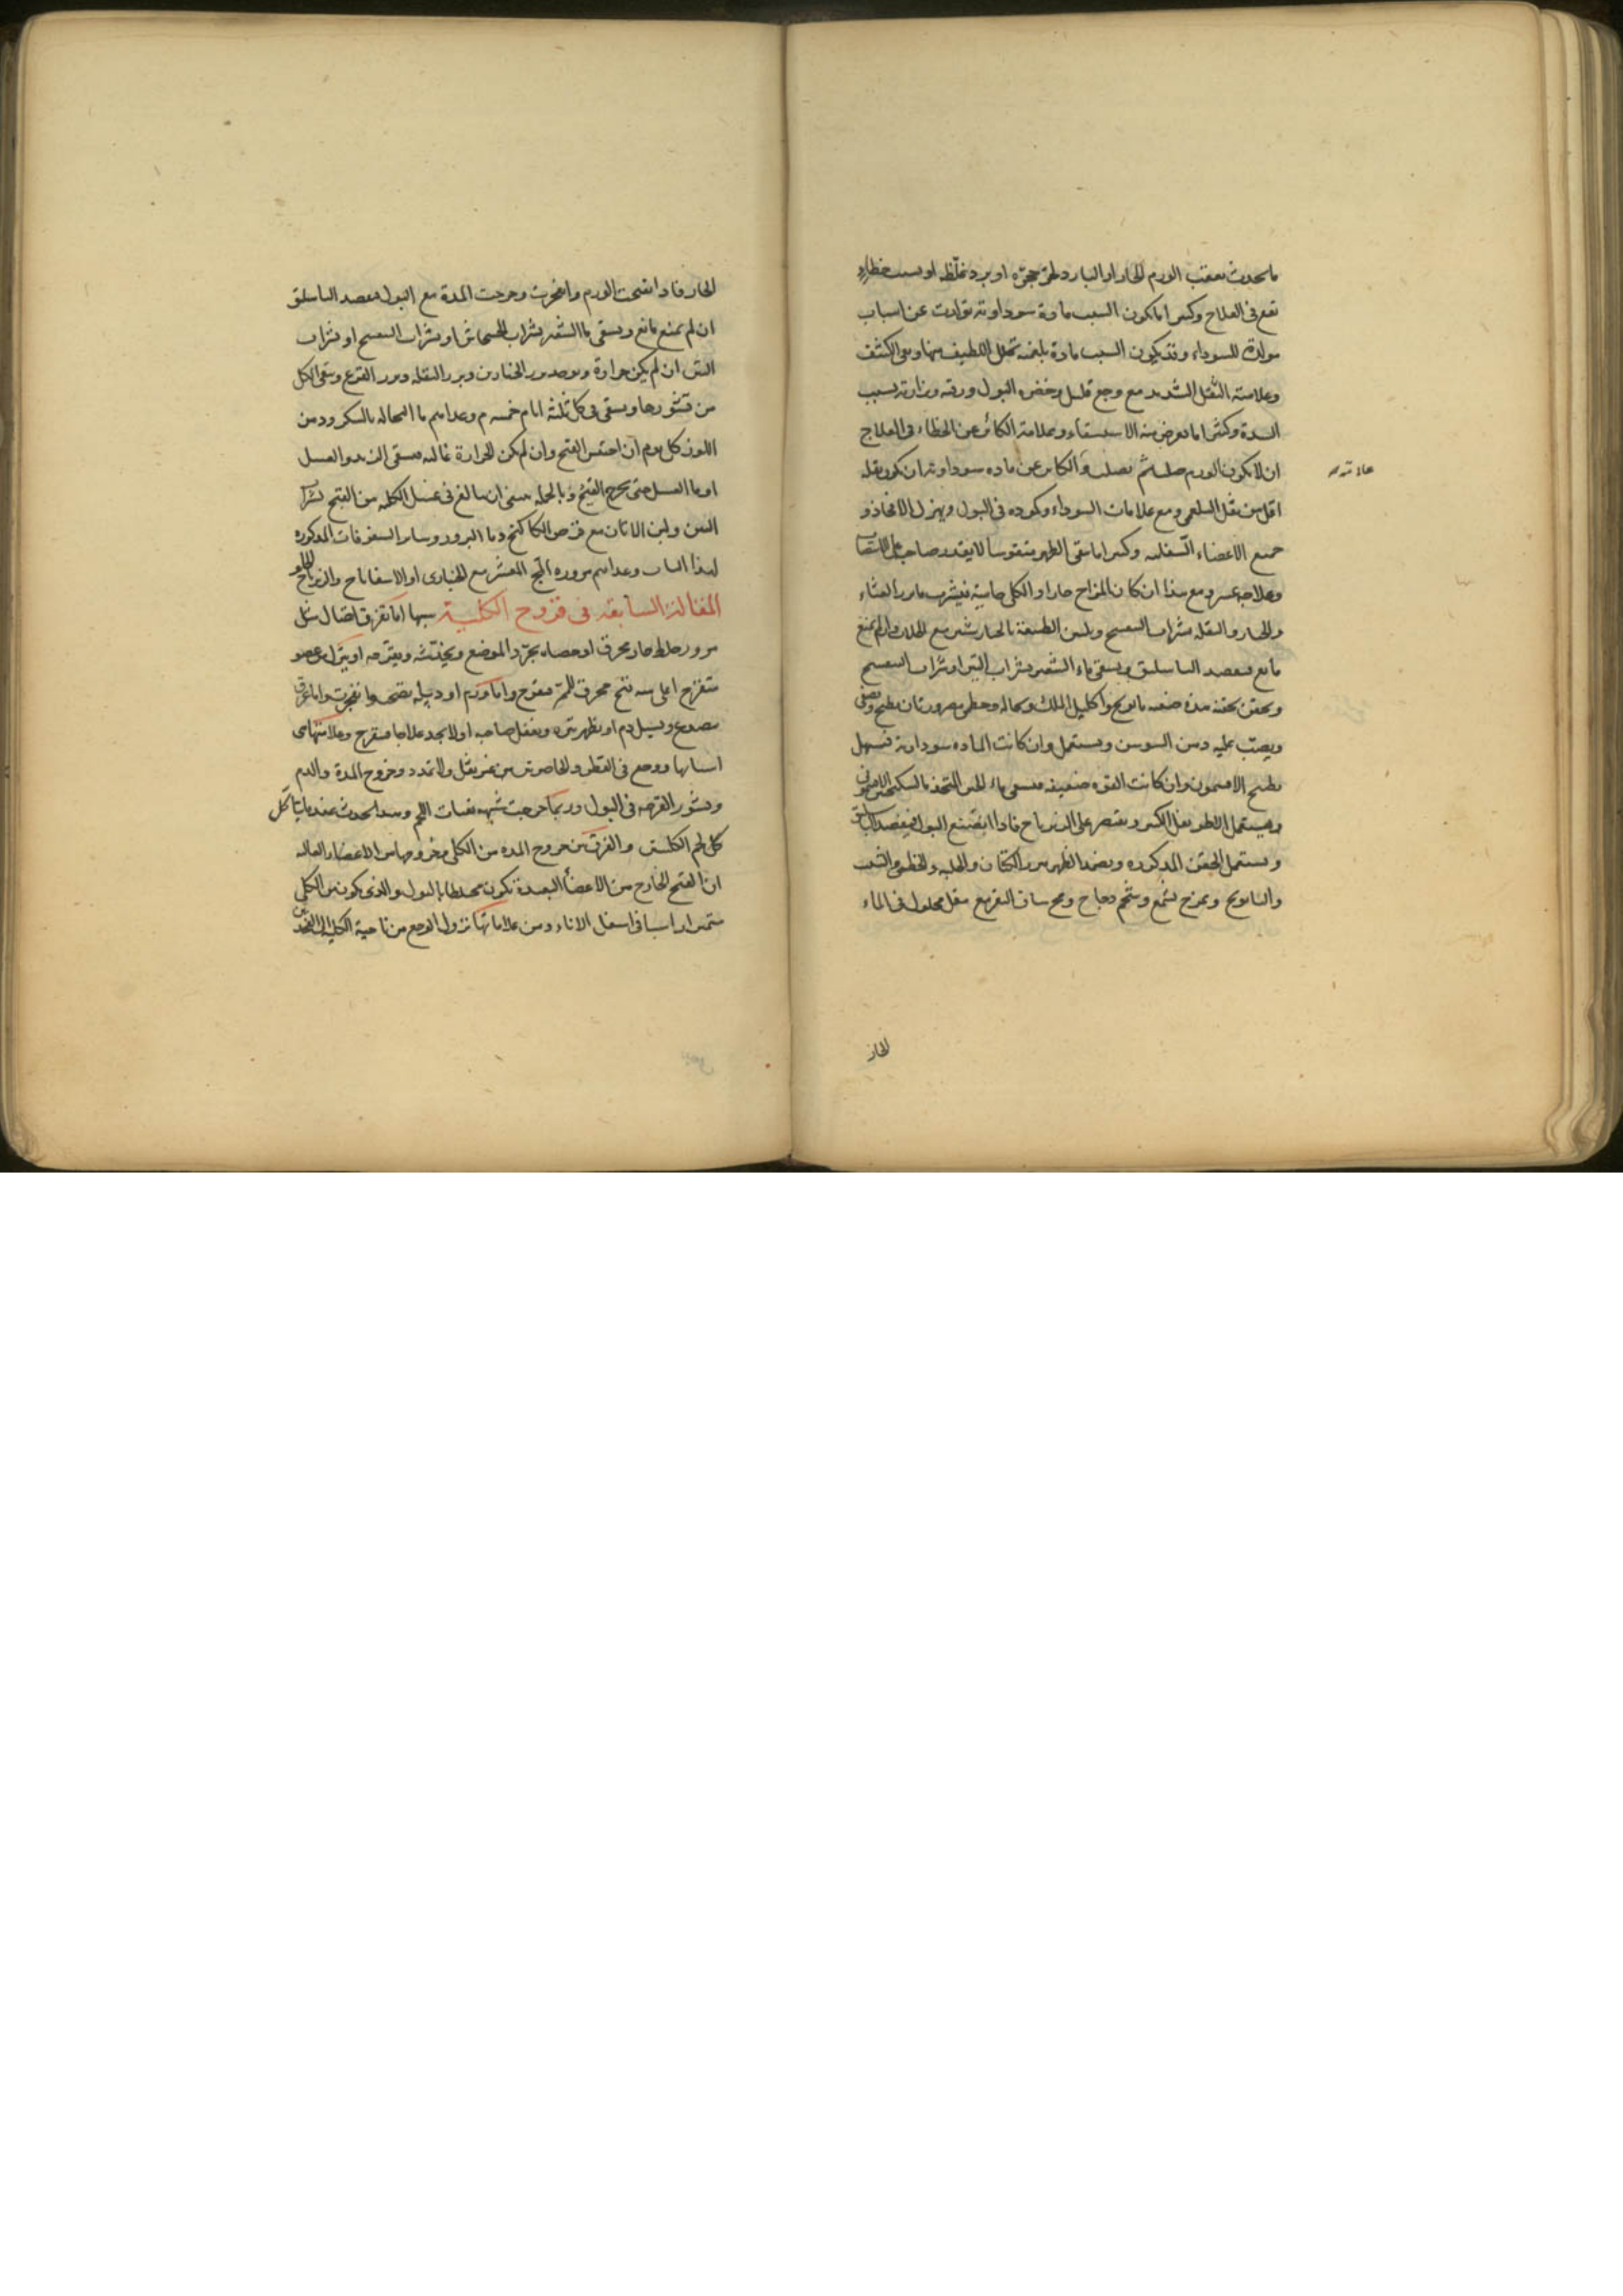 ما يحدث بعقب الورم الحار او البارد لحر حجره او برد غلظ او بسبب خطاء
يقع فى العلاج وكثيرا ما يكون السبب مادة سوداوية تولدت عن اسباب
مولدة للسوداء وقد يكون السبب مادة بلغمية تحلل اللطيف منها وبقى الكثيف
وعلامته الثقل الشديد مع وجع قليل وخضرة البول ورقته ونزارته بسبب
السدة وكثيرا ما يعرض منه الاستسقاء وعلامة الكائن عن الخطاء فى العلاج
ان لا يكون الورم صلبا ثم يصلب والكائن عن ماده سوداوية ان يكون ثقله
علامته
اقل من ثقل البلغمى ومع علامات السوداء وكموده فى البول ويهزل الافخاذ و
جميع الاعضاء السفليه وكثيرا ما يبقى الظهر متقوسا لا يقدر صاحبه على الانتصاب
وعلاجه عسر ومع هذا ان كان المزاج حارا و الكلى حامية فيشرب ماء بزر القثاء
والخيار والبقله بشراب البنفسج ويلين الطبيعة بالخيار شنبر مع الجلاب وان لم يمنع
مانع فيفصد الباسليق ويسقى ماء الشعير بشراب التين او شراب البنفسج
ويحقن بحقنه هذه صفته بابونج واكليل الملك ونخاله وخطمى يطبخ ويصفى
ويصب عليه دهن السوسن ويستعمل وان كانت الماده سوداوية فيسهل
بطبيخ الافتيمون وان كانت القوه ضعيفه فيسقى ماء الجبن المتخذ بالسكنجبين الافتيمونى
ويستعمل الاطريفل الكبير ويقتصر على الزيرباج فاذا امتنع البول فيفصد الباسليق
ويستعمل الحقن المذكوره ويضمد الظهر ببزر الكتان والحلبه والخطمى والشبت
والبابونج ويمرخ بشمع وشحم دجاج ومخ ساق البقر مع مقل محلول فى الماء
الحار
الحار فاذا انفتحت الورم وانفجرت وخرجت المدة مع البول فيفصد الباسليق
ان لم يمنع مانع ويسقى ماء الشعير بشراب الخشخاش او بشراب البنفسج او شراب
التين ان لم يكن حرارة ويؤخذ بزر الخيارين وبزر البقله وبزر القرع وينقى الكل
من قشورها ويسقى فى كل ثلثه ايام خمسه م وغذاءهم ماء النخاله بالسكر ودهن
اللوز كل يوم ان احتبس القيح وان لم يكن الحرارة غالبه فيسقى الزبد والعسل
او ماء العسل حتى يخرج القيح وبالجمله ينبغى ان يبالغ فى غسل الكليه من القيح بشراب
التين ولبن الاتان مع قرص الكاكنج وماء البزور وسائر السفوفات المذكوره
لهذا الباب وغذاءهم مزوره المج المقشر مع الخبازى او الاسفاناخ والزيرباج
المقالة السابعة فى قروح الكلية سببها اما تفرق اتصال مثل
مرور خلط حار محرق او حصاه يجرد الموضع ويخدشه ويقرحه او ينزل من عضو
متقرح اعلى منه قيح محرق للممر فيقرح واما ورم او دبيله نضجت وانفجرت واما عرق
ينصدع ويسيل دم او يظهر بثره ويغفل صاحبه اولا يجد علاجا فيتقرح وعلامتها مى
اسبابها ووجع فى القطن والخاصرتين من غير ثقل ولا تمدد وخروج المدة والدم
وقشور القرحه فى البول وربما خرجت شبيه بفتات اللحم وهذا يحدث عند ما يتاكل
كل لحم الكليتين والفرق بين خروج المده من الكلى وخروجها من الاعضاء العاليه
ان القيح الخارج من الاعضاء البعيدة يكون مختلطا بالبول والذى يكون من الكلى
متميزا راسبا فى اسفل الاناء ومن علاماتها نزول الوجع من ناحية الكلية الى الفخذين